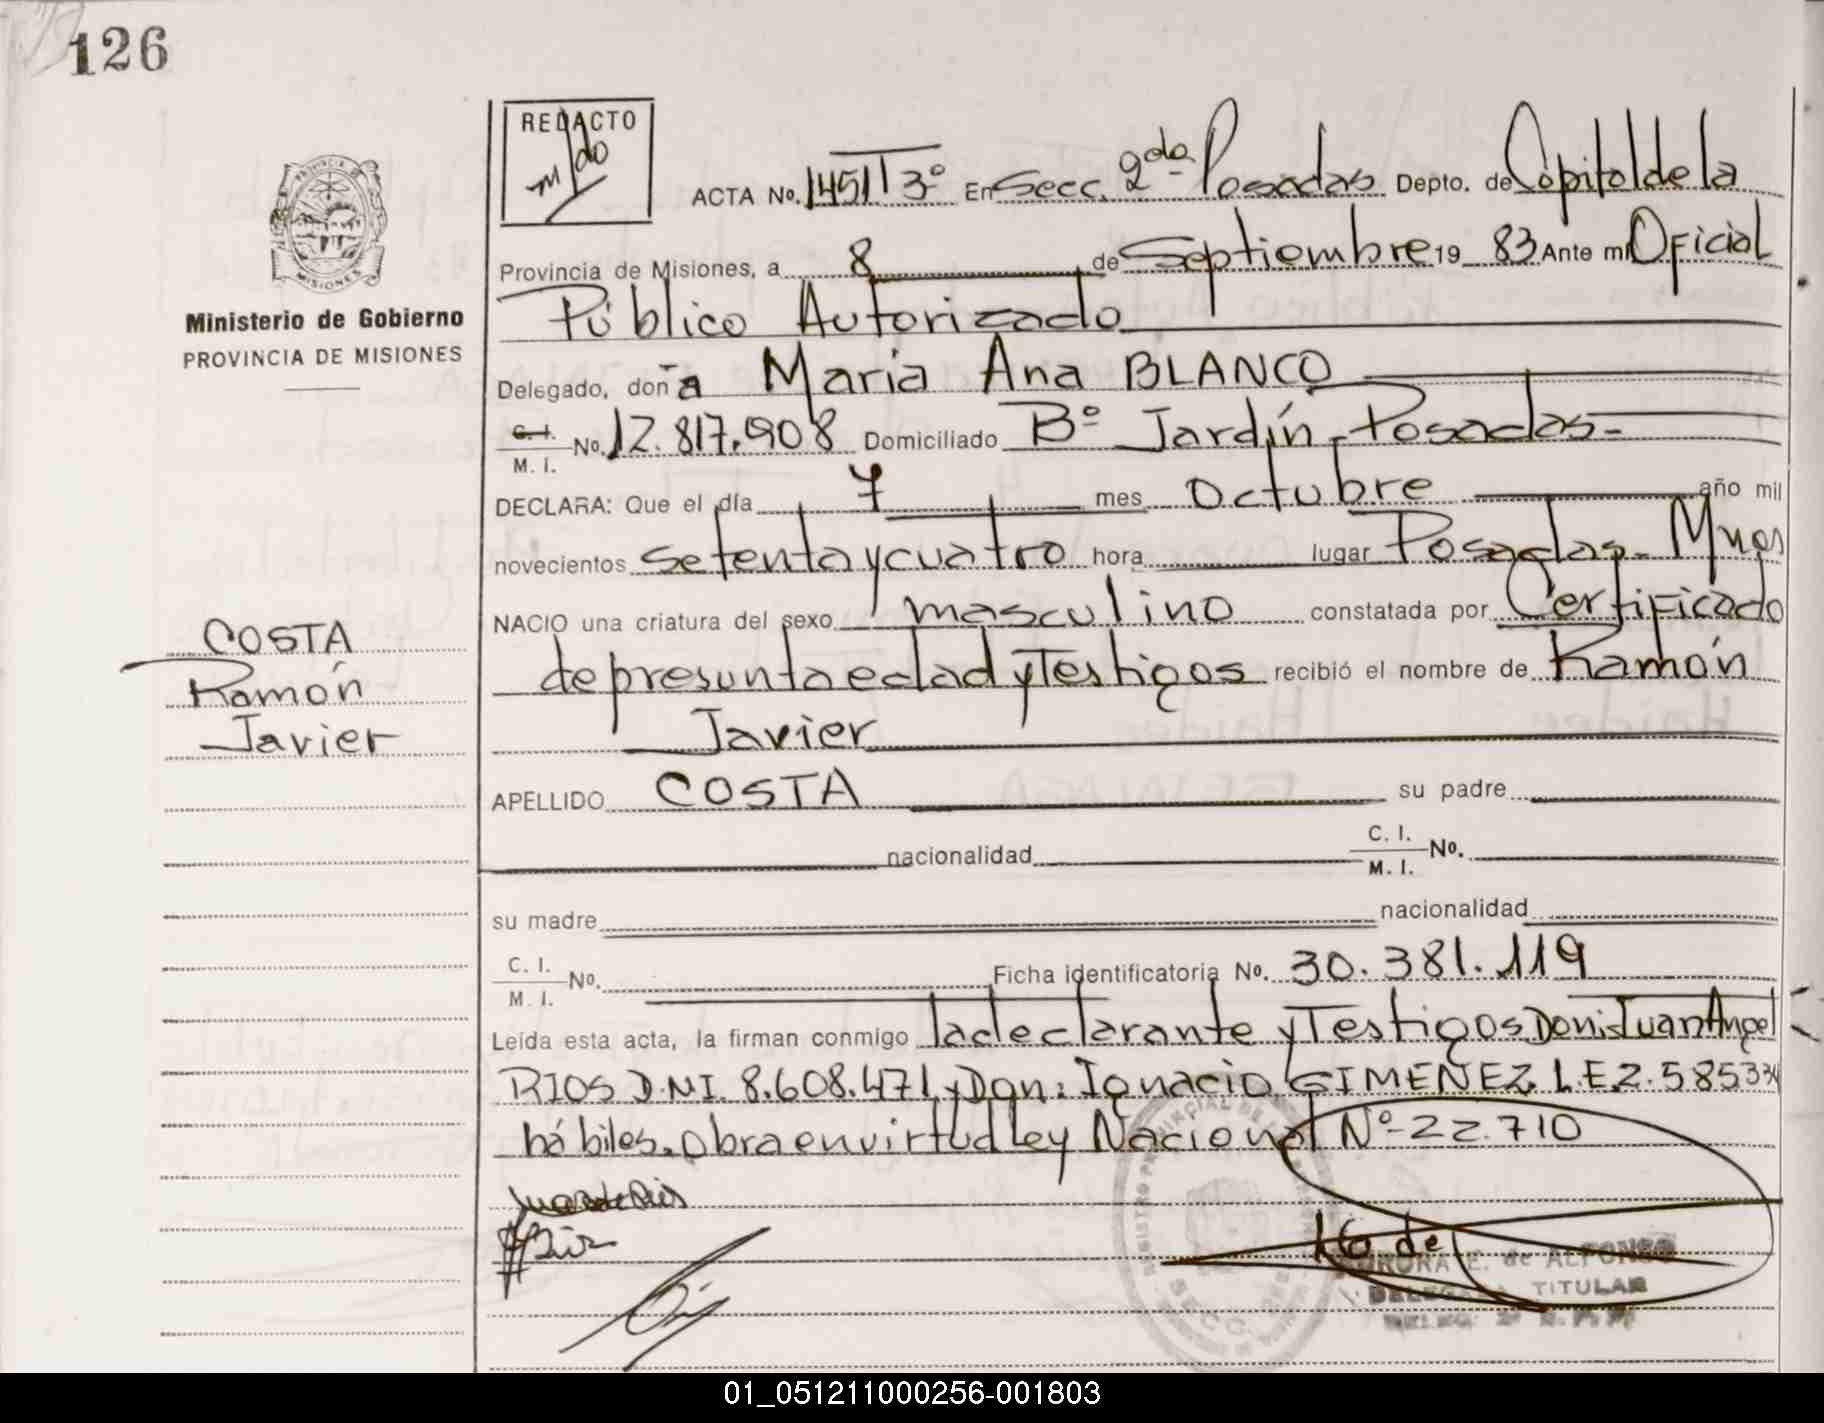 126
REDACTO
ACTA No. 1451 T 3º En Secc. 2da. Posadas Depto. de Capital de la
Provincia de Misiones, a 8 de Septiembre 19 83 Ante mi Oficial
Público Autorizado
Delegado, doña María Ana BLANCO
C. I.
M. I. No. 12.817.908 Domiciliado Bº Jardín - Posadas -
DECLARA: Que el día 7 mes octubre año mil
novecientos setenta y cuatro hora lugar Posadas - Mnes
NACIO una criatura del sexo masculino constatada por Certificado
de presunta edad y Testigos recibió el nombre de Ramón
Javier
APELLIDO COSTA su padre
nacionalidad C. I.
M. I. No.
su madre nacionalidad
C. I.
M. I. No. Ficha identificatoria No. 30.381.119
Leída esta acta, la firman conmigo la declarante y Testigos Don: Juan Angel
RIOS D.N.I. 8.608.471 y Don: Ignacio GIMENEZ L.E 2.585334
hábiles. Obra en virtud Ley Nacional Nº 22.710
16 de
AURORA E. de ALFONSO
DELEGADA TITULAR
PROVINCIA
MISIONES
Ministerio de Gobierno
PROVINCIA DE MISIONES
COSTA
Ramón
Javier
01_051211000256-001803